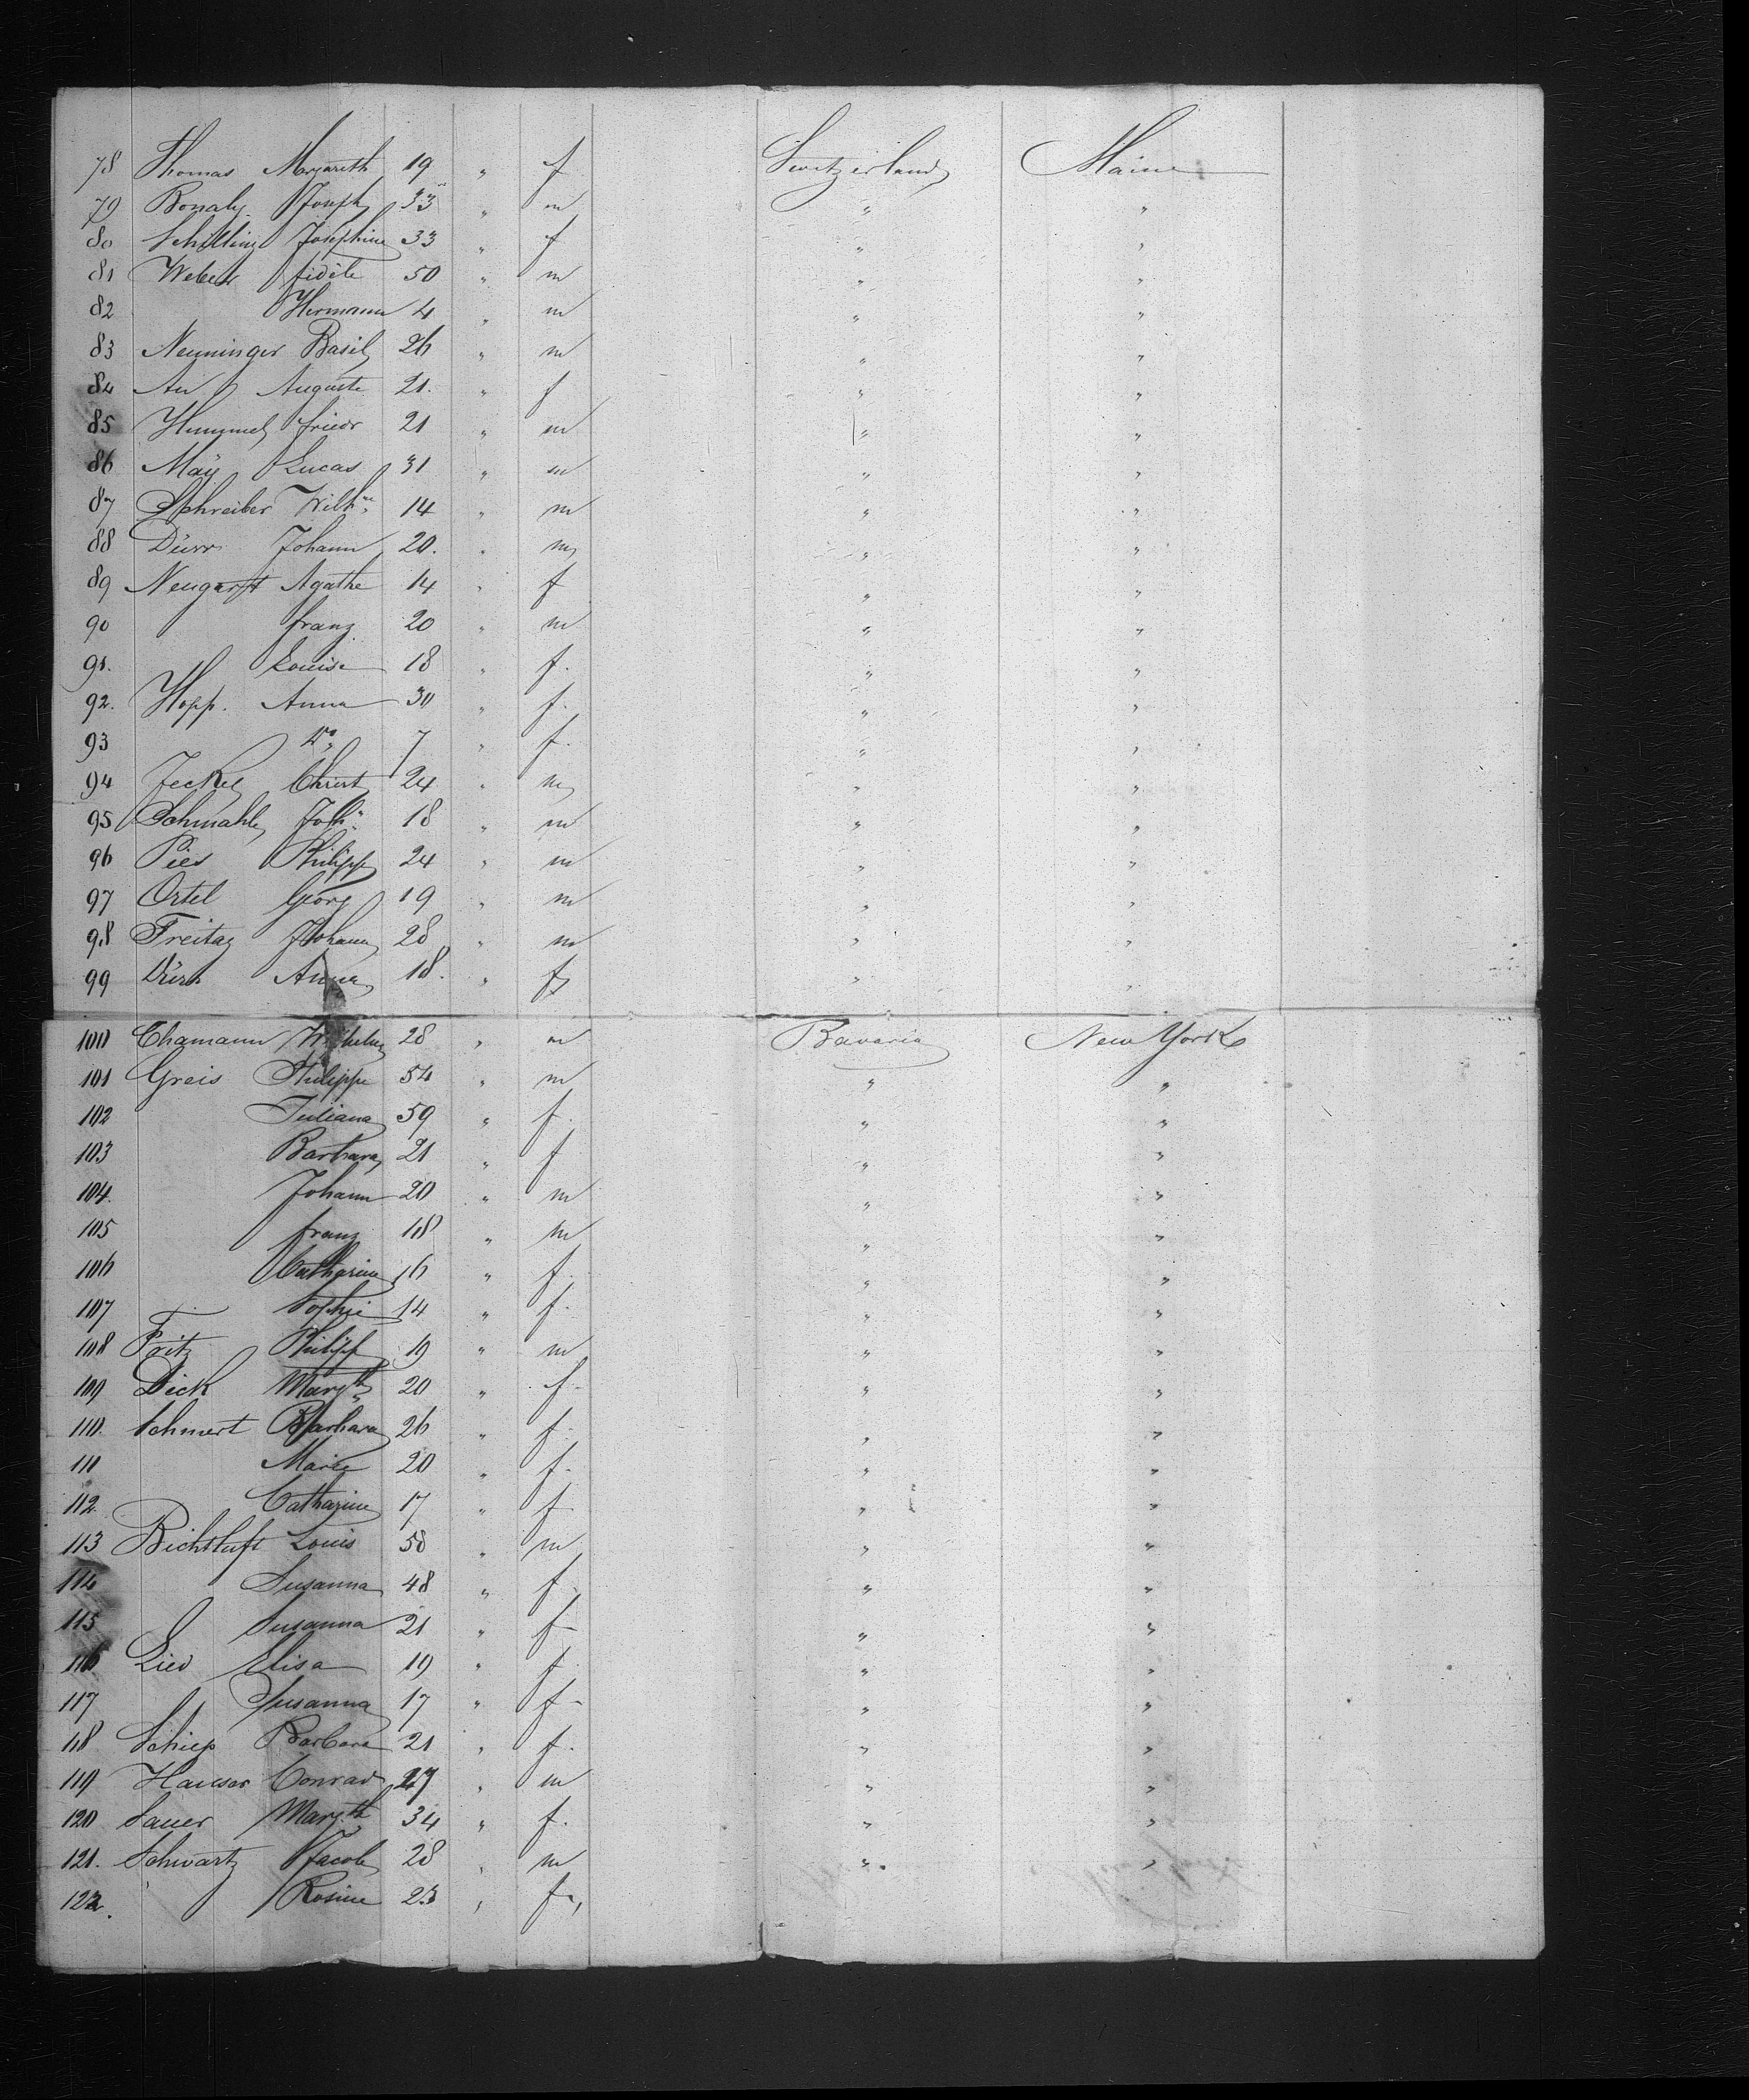 78 Thomas Margareth 19 " f Switzerland Maine
79 Bonaly Joseph 33 " m " "
80 Schilling Josephine 33 " f " "
81 Weber fidèle 50 " m " "
82 Hermann 4 " m " "
83 Neuninger Basil 26 " m " "
84 Au Auguste 21. " f " "
85 Hummel friedr 21 " m " "
86 Maÿ Lucas 31 " m " "
87 Schreiber Wilhm 14 " m " "
88 Dürr Johann 20. " m " "
89 Neugarft Agathe 14 " f " "
90 franz 20 " m " "
91. Louise 18 " f. " "
92. Hopp. Anna 30 " f. " "
93 do 7 " f. " "
94 Jeckel Christ 24 " m " "
95 Schmahl Joh 18 " m " "
96 Pies Philipp 24 " m " "
97 Ortel Georg 19 " m " "
98 Freitag Johann 28 " m " "
99 Dürk Anna 18. " f " "
100 Chamann Wilhelm 28 " m Bavaria New York
101 Greis Philippe 54 " m " "
102 Juliana 59 " f " "
103 Barbara 21 " f " "
104. Johann 20 " m " "
105 franz 18 " m " "
106 Catharine 16 " f. " "
107 Sophie 14 " f. " "
108 Fritz Philipp 19 " m " "
109 Dick Margth 20 " f. " "
110. Schmert Barbara 26 " f. " "
111 Marie 20 " f. " "
112. Catharine 17 " f. " "
113 Bichtluft Louis 50 " m " "
114 Susanna 48 " f " "
115 Susanna 21 " f " "
116 Lied Elisa 19 " f " "
117 Susanna 17 " f " "
118 Schiep Barbara 21 " f. " "
119 Hauser Conrad 27 " m " "
120 Sauer Margth 34 " f. " "
121. Schwartz Jacob 28 " m " "
122. Rosine 23 " f